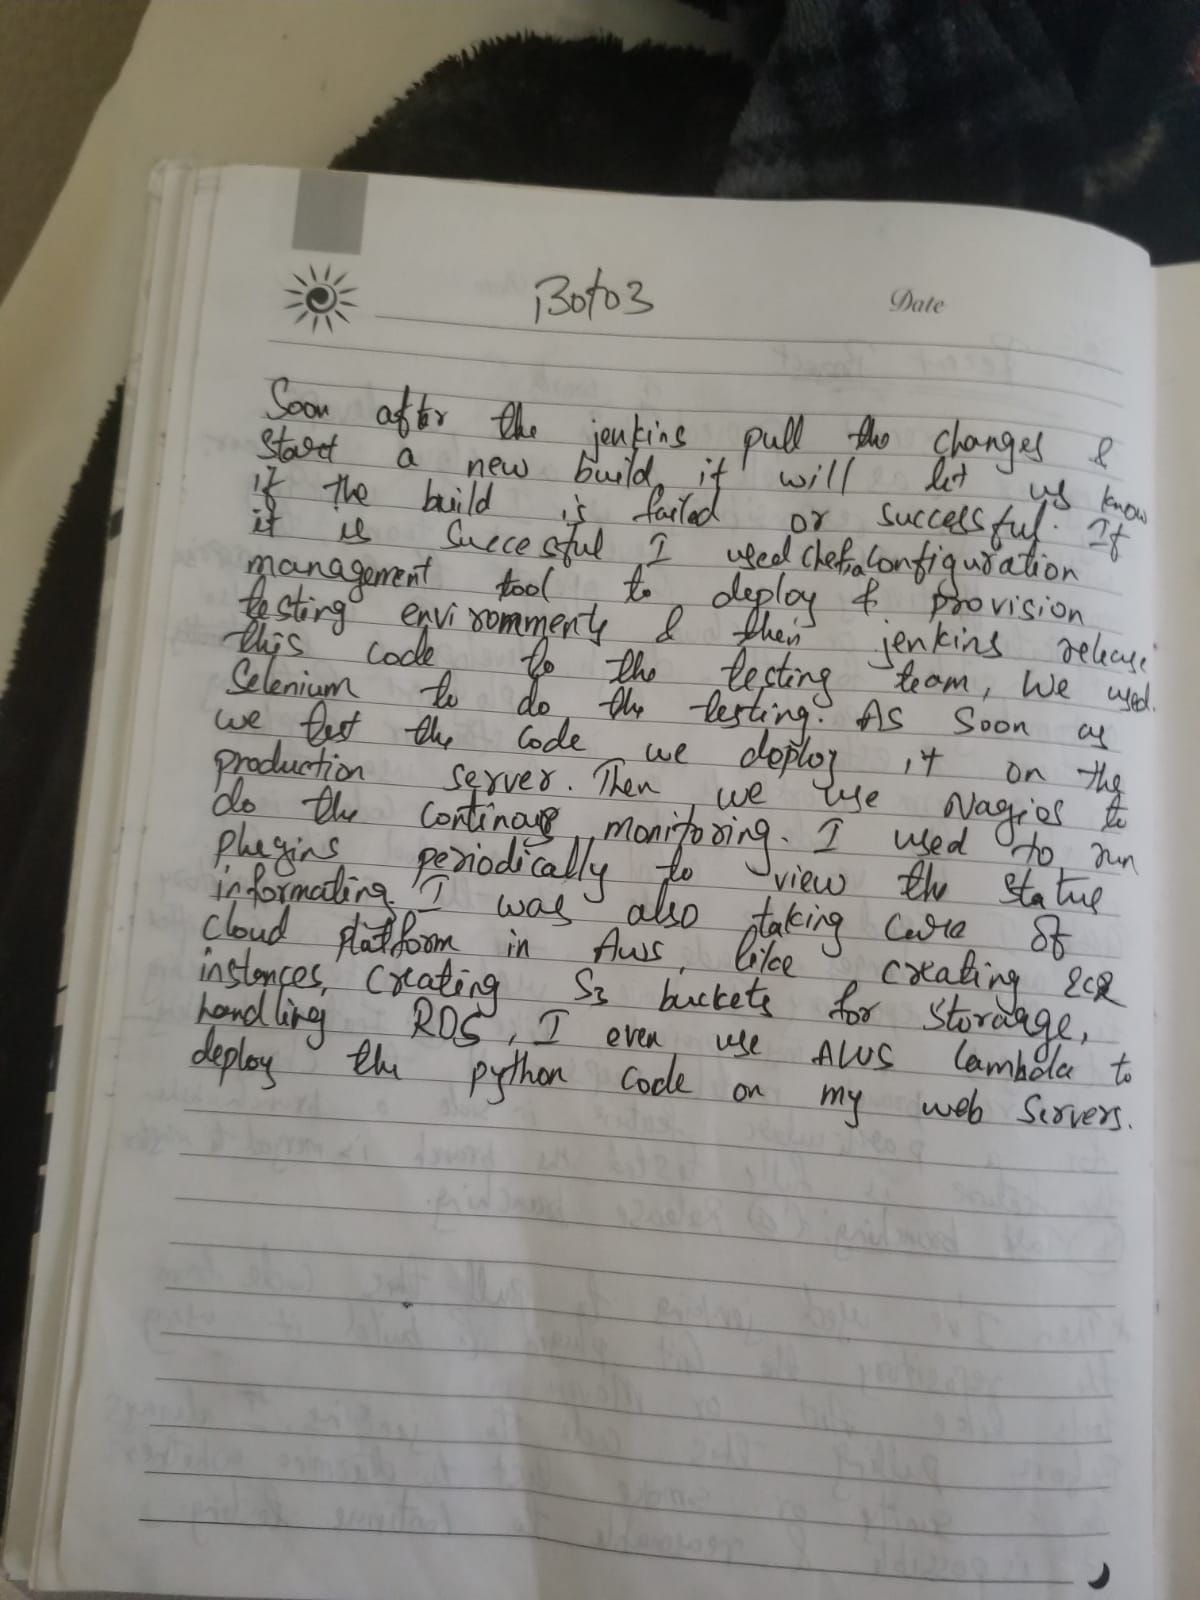 Boto3
Date
Soon after the jenkins pull the changes &
start a new build, it will let us know
if the build is failed or successful. If
it is Succesful I used chef, a Configuration
management tool to deploy & provision
testing environments & then jenkins release
this code to the testing team, We used
Selenium to do the testing. AS Soon as
we test the code we deploy it on the
production server. Then we use Nagios to
do the continous monitoring. I used to run
plugins periodically to view the status
information. I was also taking care of
cloud platform in AWS, like creating EC2
instances, creating S3 buckets for storage,
handling RDS, I even use AWS Lambda to
deploy the python code on my web servers.